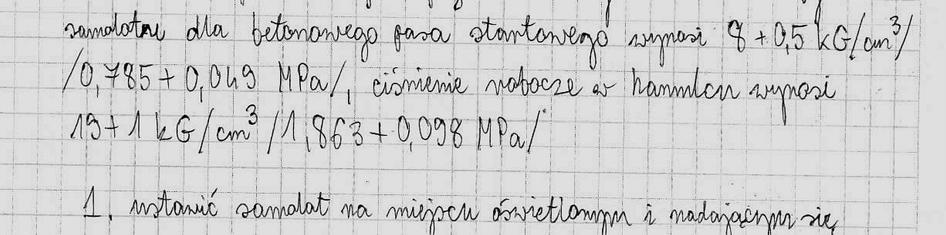 samolotu dla betonowego pasa startowego wynosi 8 + 0,5 kG/cm³/
/0,785 + 0,049 MPa/, ciśnienie robocze w hamulcu wynosi
19 + 1 kG/cm³ /1,863 + 0,098 MPa/
1. ustawić samolot na miejscu oświetlonym i nadającym się